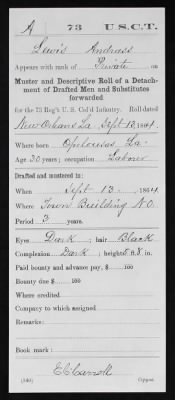 A 73 U.S.C.T.
Lewis Andrass
Appears with rank of Private on
Muster and Descriptive Roll of a Detach-
ment of Drafted Men and Substitutes
forwarded
for the 73 Reg't U. S. Col'd Infantry. Roll dated
New Orleans La Sept 13, 1864.
Where born Opelousas, La.
Age 30 years; occupation Laborer
Drafted and mustered in:
When Sept 13, 1864
Where Town Building N.O.
Period 3 years.
Eyes Dark; hair Black
Complexion Dark; height 5 ft. 8 in.
Paid bounty and advance pay, $ 100
Bounty due $ 100
Where credited
Company to which assigned
Remarks:
Book mark:
(340) Copyist.